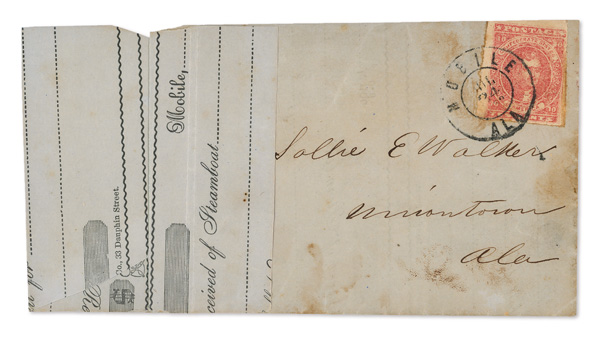 MOBILE
ALA
POSTAGE
Sallie E Walker
Uniontown
Ala
Mobile,
ceived of Steamboat
Co., 33 Dauphin Street.
$